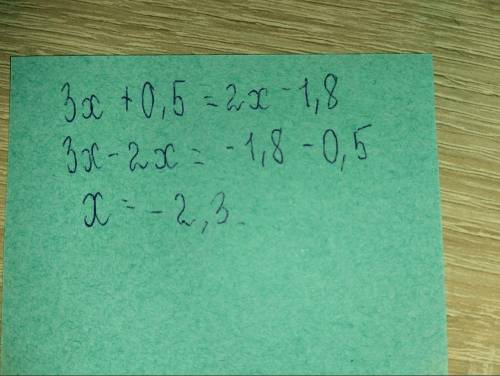 3x + 0,5 = 2x - 1,8
3x - 2x = -1,8 - 0,5
x = -2,3